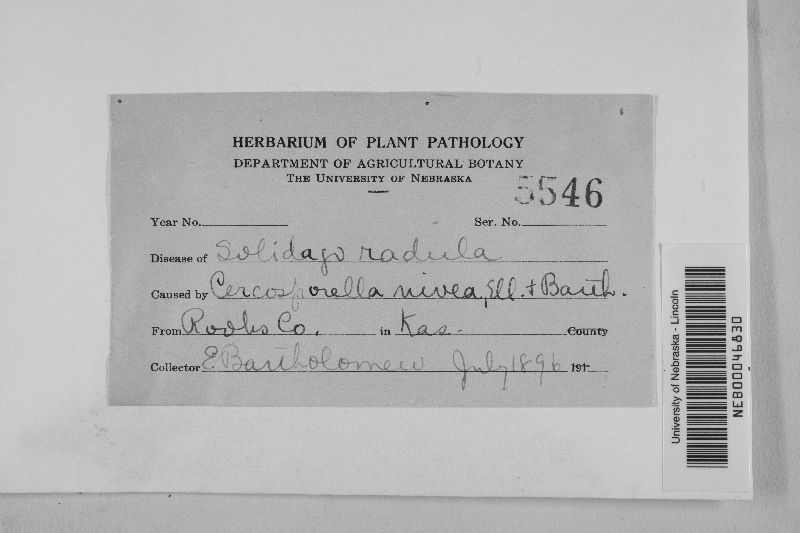 HERBARIUM OF PLANT PATHOLOGY
DEPARTMENT OF AGRICULTURAL BOTANY
THE UNIVERSITY OF NEBRASKA
5546
Year No. Ser. No.
Disease of Solidago radula
Caused by Cercosporella nivea, Ell. & Barth.
From Rooks Co. in Kas. County
Collector E Bartholomew July 1896 191-
University of Nebraska - Lincoln
NEB00046830